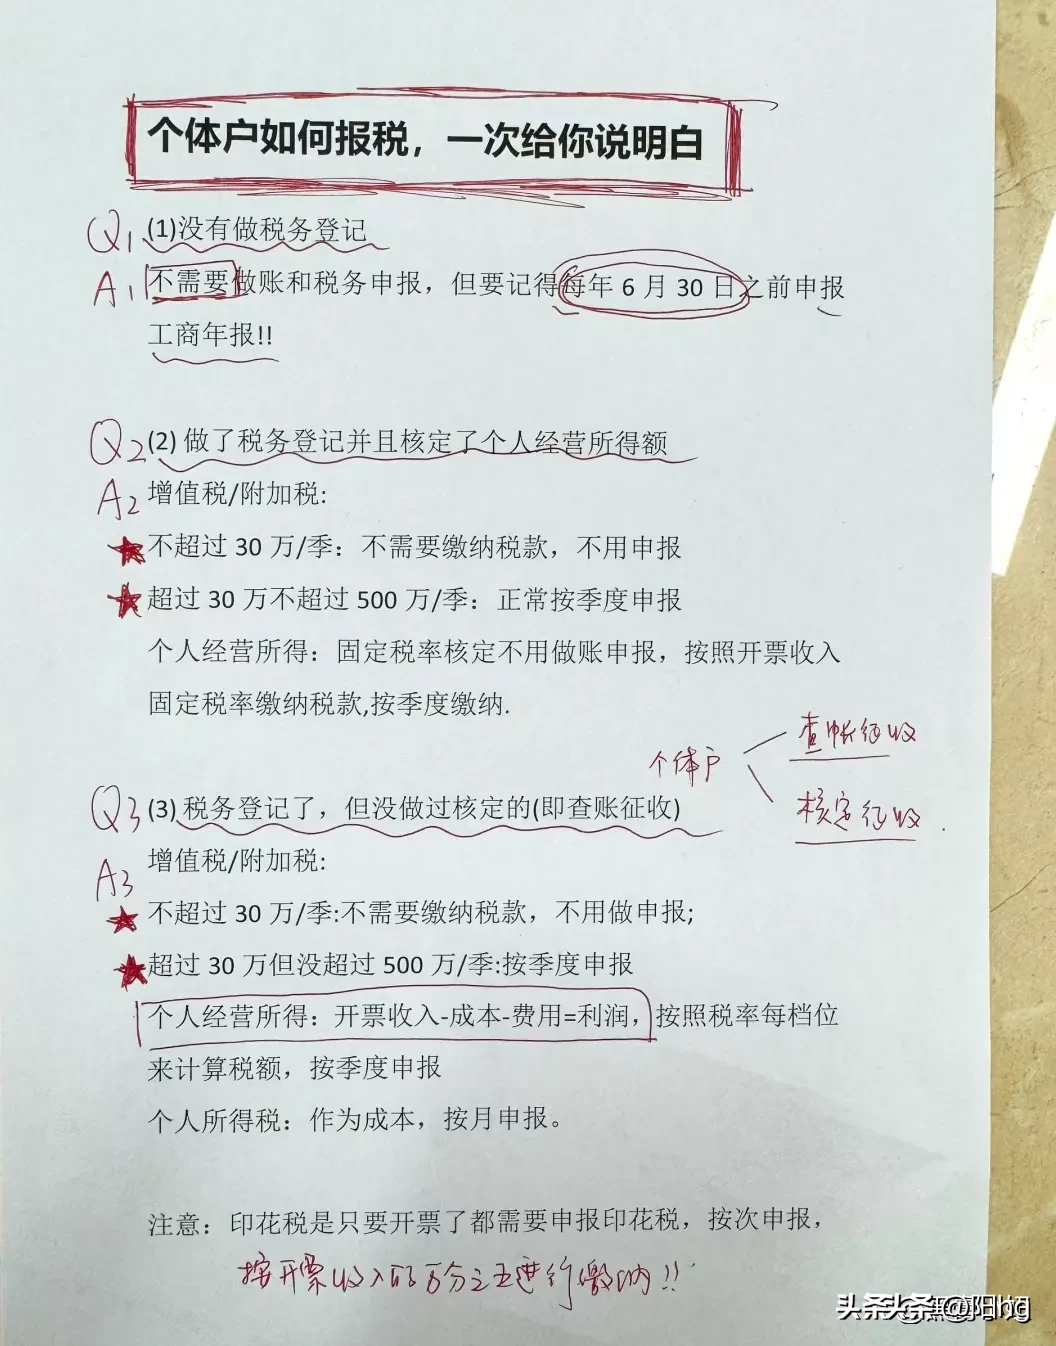 个体户如何报税，一次给你说明白
Q1 (1)没有做税务登记
A1 不需要做账和税务申报，但要记得每年 6 月 30 日之前申报
工商年报!!
Q2 (2) 做了税务登记并且核定了个人经营所得额
A2 增值税/附加税:
★ 不超过 30 万/季：不需要缴纳税款，不用申报
★ 超过 30 万不超过 500 万/季：正常按季度申报
个人经营所得：固定税率核定不用做账申报，按照开票收入
固定税率缴纳税款,按季度缴纳.
个体户
查帐征收
核定征收
Q3 (3) 税务登记了，但没做过核定的(即查账征收)
A3 增值税/附加税:
★ 不超过 30 万/季:不需要缴纳税款，不用做申报;
★ 超过 30 万但没超过 500 万/季:按季度申报
个人经营所得：开票收入-成本-费用=利润，按照税率每档位
来计算税额，按季度申报
个人所得税：作为成本，按月申报。
注意：印花税是只要开票了都需要申报印花税，按次申报，
按开票收入的万分之五进行缴纳!!
头条